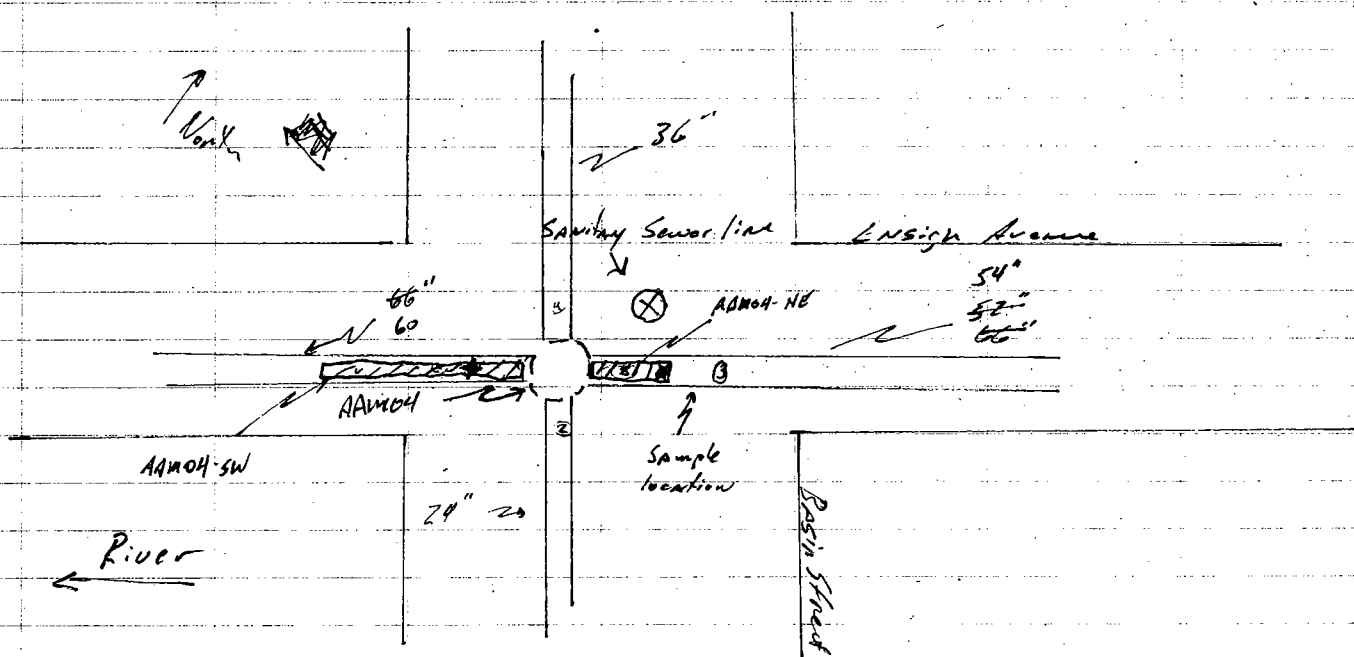 North
36"
Sanitary Sewer line
Ensign Avenue
54"
52"
66"
66"
60
AAMO4-NE
1
3
AAMO4
2
Sample
location
AAMO4-SW
24"
River
Basin Street